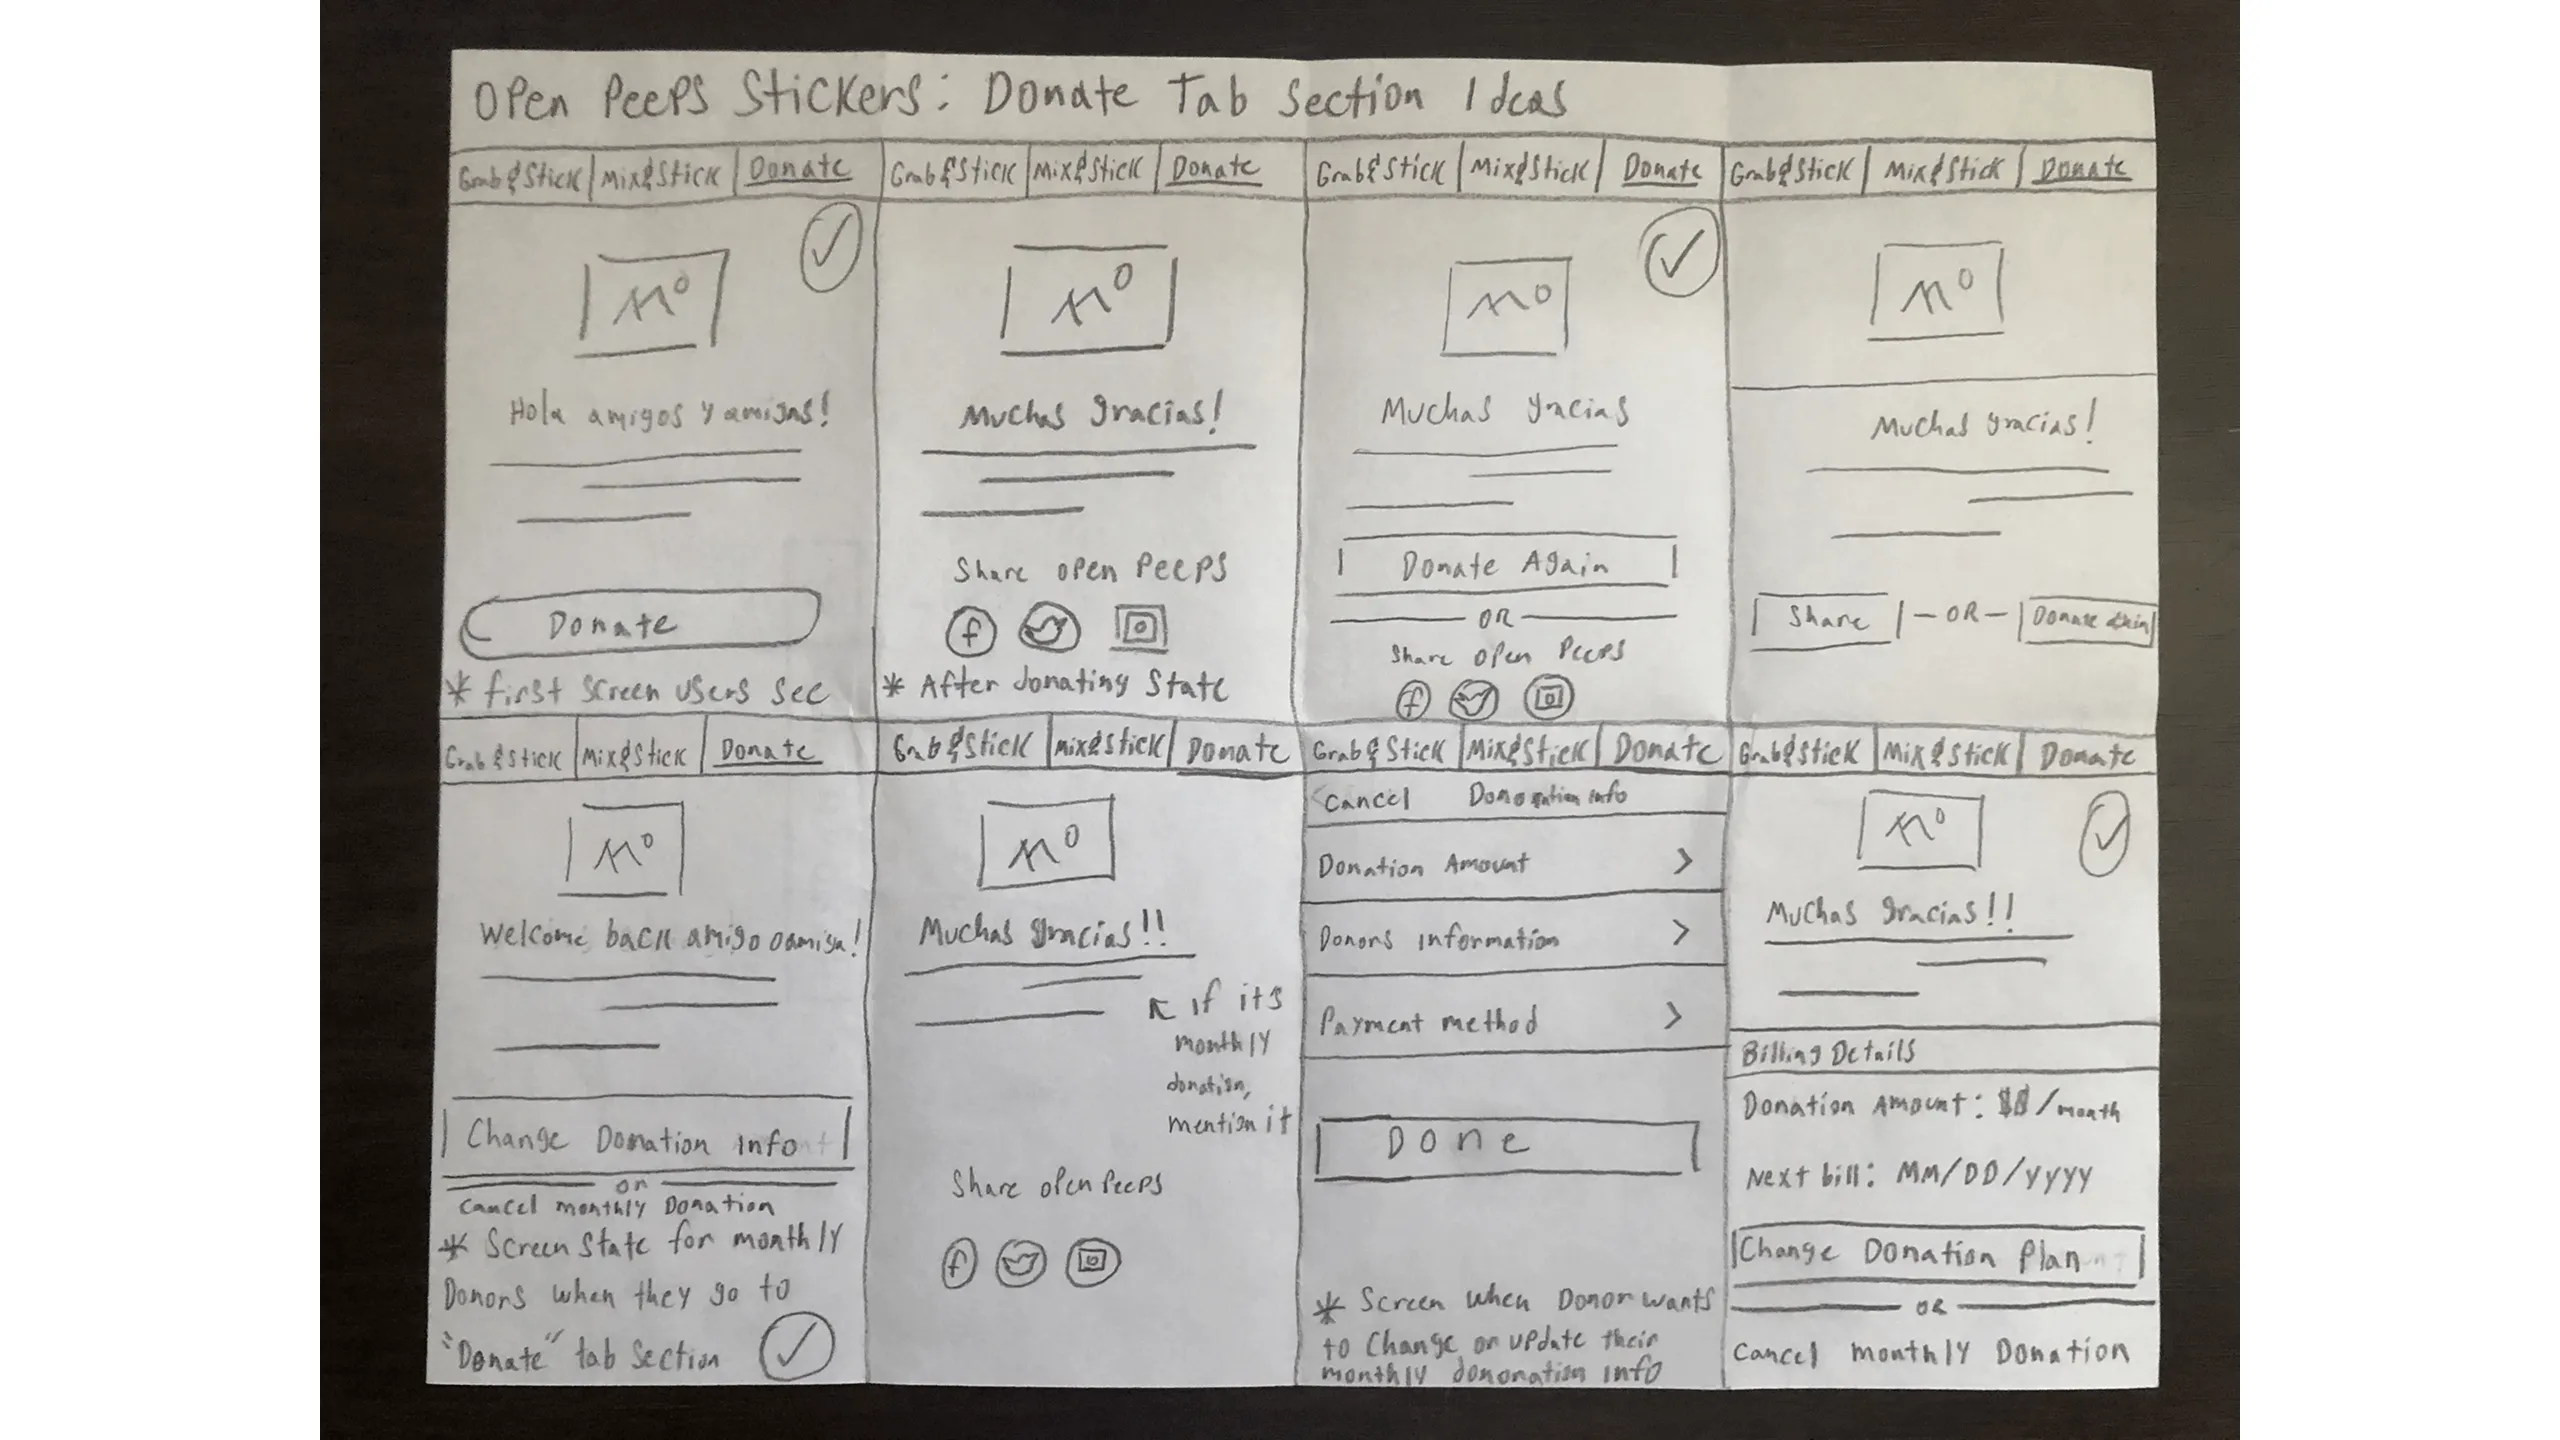 Open Peeps Stickers: Donate Tab Section Ideas
Grab & Stick Mix & Stick Donate
Hola amigos y amigas!
Donate
* first screen users see
Grab & Stick Mix & Stick Donate
Muchas gracias!
Share open peeps
f
* After donating state
Grab & Stick Mix & Stick Donate
Muchas gracias
Donate Again
OR
Share open peeps
f
Grab & Stick Mix & Stick Donate
Muchas gracias!
Share - OR - Donate Again
Grab & Stick Mix & Stick Donate
Welcome back amigo o amiga!
Change Donation info
or
Cancel monthly Donation
* Screen state for monthly
Donors when they go to
"Donate" tab section
Grab & Stick Mix & Stick Donate
Muchas gracias!!
if its
monthly
donation,
mention it
Share open peeps
f
Grab & Stick Mix & Stick Donate
< Cancel info
Donation Amount >
Donors information >
Payment method >
Done
* Screen when Donor wants
to change or update their
monthly dononation info
Grab & Stick Mix & Stick Donate
Muchas gracias!!
Billing Details
Donation Amount: $$/month
Next bill: MM/DD/YYYY
Change Donation Plan
OR
Cancel monthly Donation